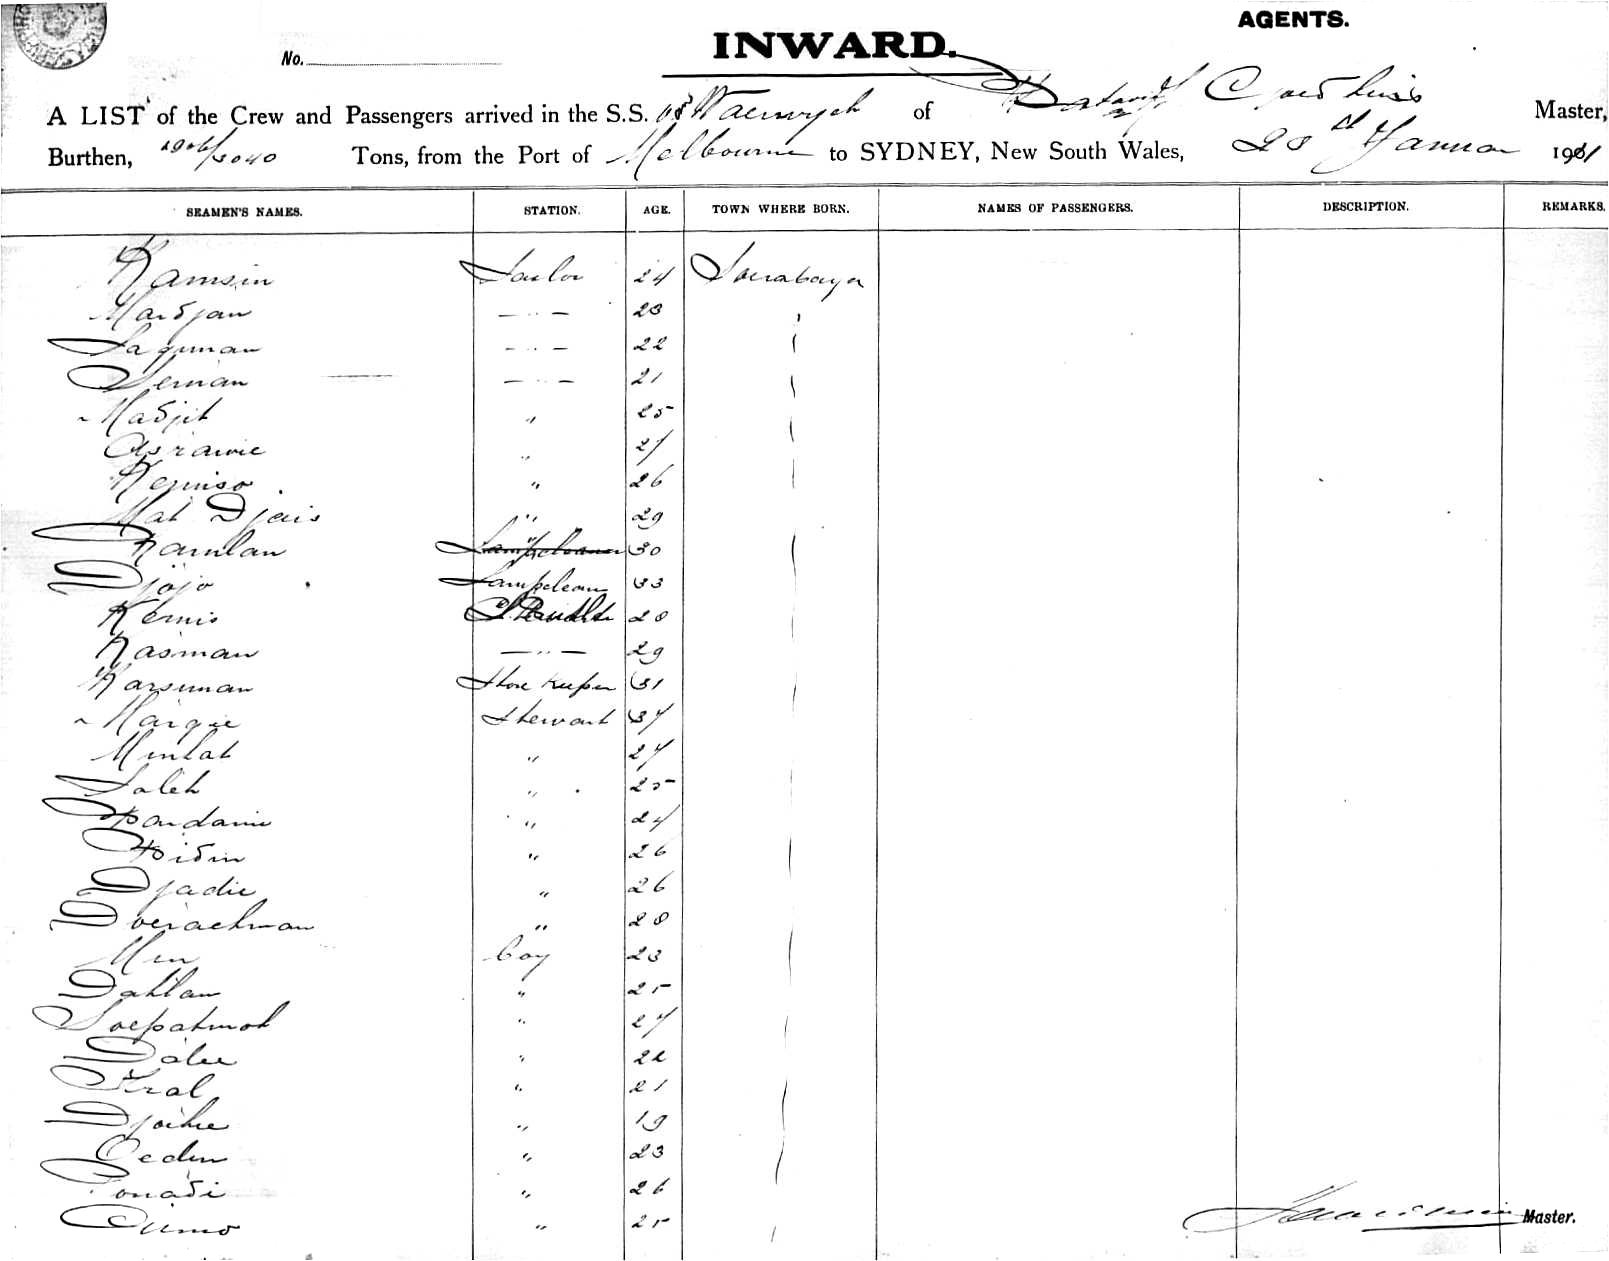 AGENTS.
No.
INWARD.
A LIST of the Crew and Passengers arrived in the S.S. Waerwyck of Batavia Master,
Burthen, Tons, from the Port of Melbourne to SYDNEY, New South Wales, 1901
SEAMEN'S NAMES. STATION. AGE. TOWN WHERE BORN. NAMES OF PASSENGERS. DESCRIPTION. REMARKS.
Kamsin Sailor 24 Sourabaya
Mardjan — " — 23
Saguman — " — 22
Seman — " — 21
Madjit " 25
Asrawie " 27
Kemiso " 26
Mat Djais " 29
Ramlan " 30
Djojo Lampclean 33
Kemis 28
Kasman — " — 29
Karsiman Store Keeper 31
Margie Stewart 37
Mintat " 27
Saleh " 25
Pardanie " 24
Pidin " 26
Djadie " 26
Doerachman " 28
Min Boy 23
Dahlan " 25
Soepatmot " 27
Dalie " 22
Tral " 21
Djoihie " 19
Oedin " 23
Ponadi " 26
Diemo " 25
Master.